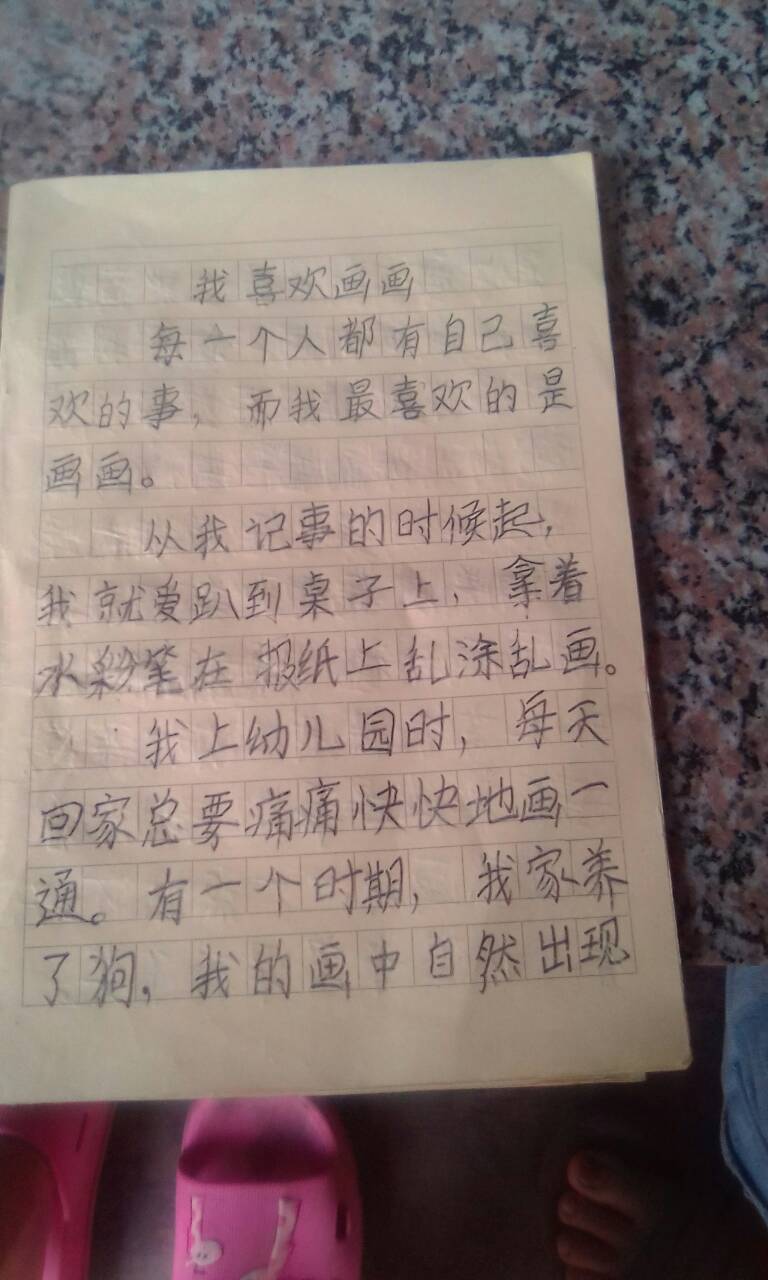 我喜欢画画
每一个人都有自己喜
欢的事，而我最喜欢的是
画画。
从我记事的时候起，
我就爱趴到桌子上，拿着
水粉笔在报纸上乱涂乱画。
我上幼儿园时，每天
回家总要痛痛快快地画一
通。有一个时期，我家养
了狗，我的画中自然出现